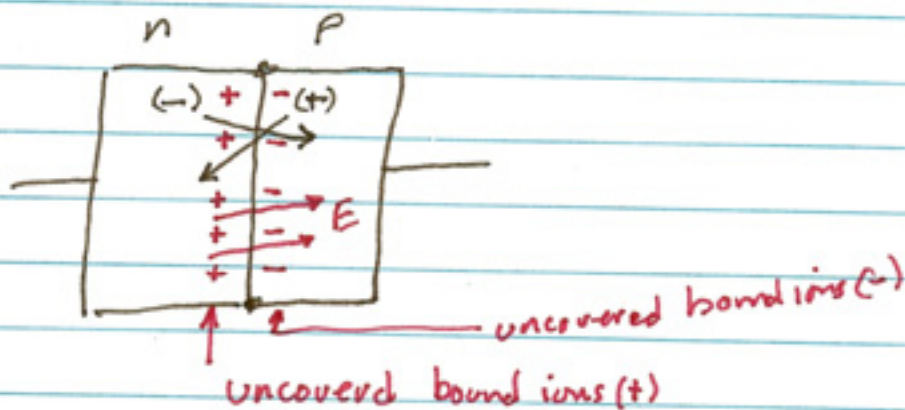 n p
(-) + - (+)
+ -
+ -
+ - E
+ -
uncovered bound ions (-)
uncoverd bound ions (+)